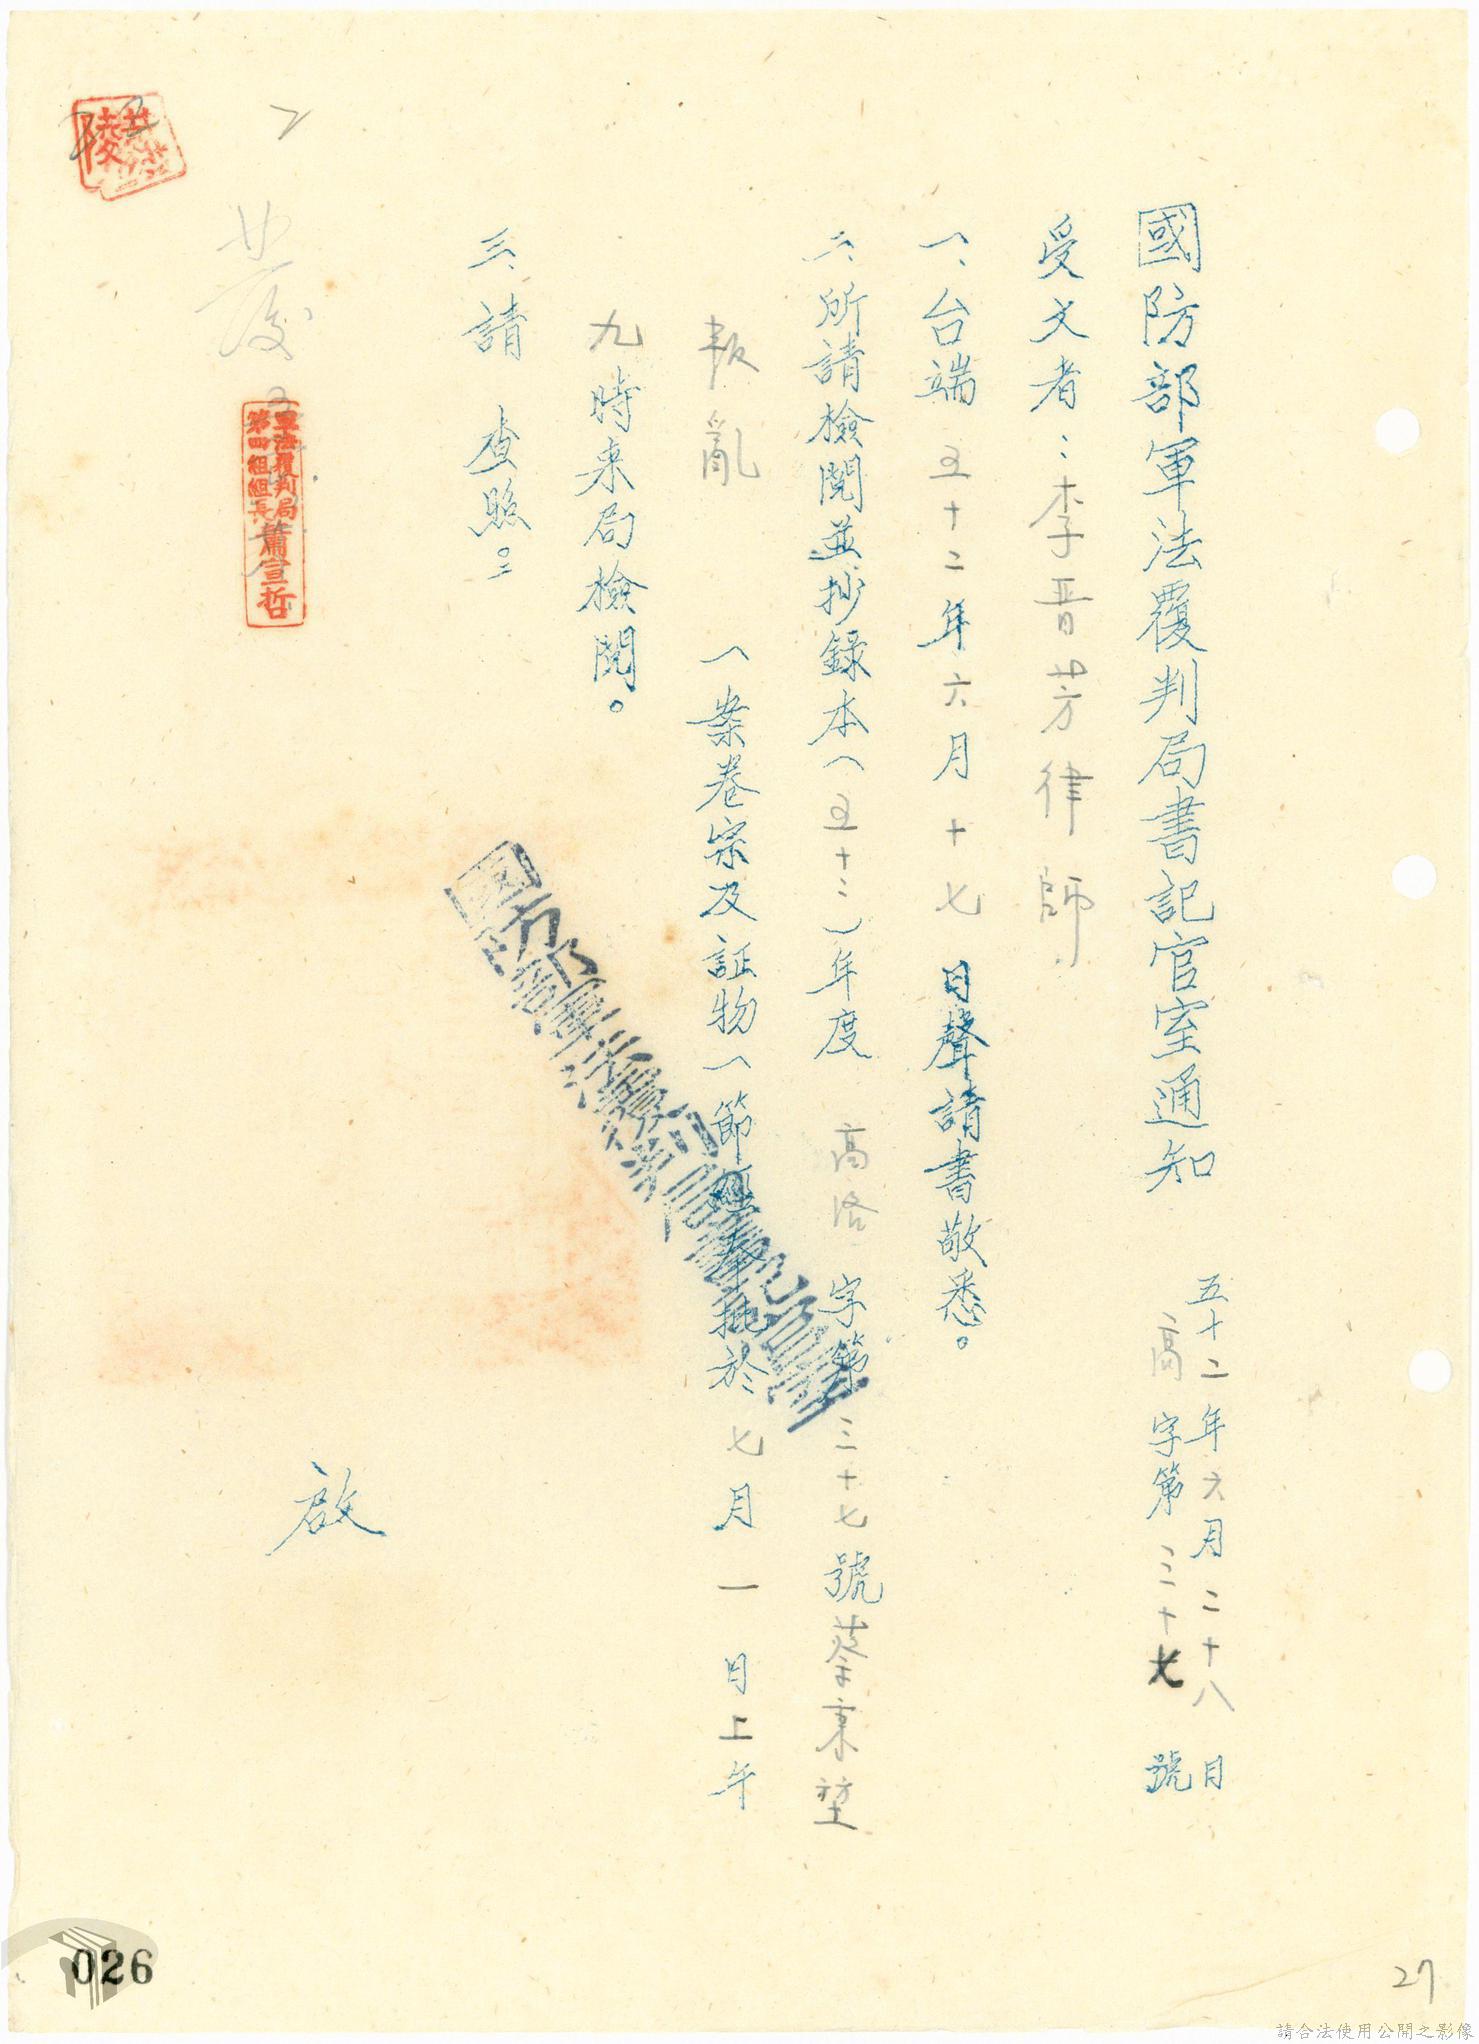 國防部軍法覆判局書記官室通知
五十二年六月二十八日
高字第三十七號
受文者：李晋芳律師
一、台端五十二年六月十七日聲請書敬悉。
二、所請檢閱並抄錄本（五十二）年度高洛字第三十七號蔡東堃
叛亂（案卷宗及証物（節經奉批於七月一日上午
九時來局檢閱。
三、請查照。
啟
國防部軍法覆判局書記官室
軍法覆判局
第四組組長蕭宣哲
026
27
請合法使用公開之影像